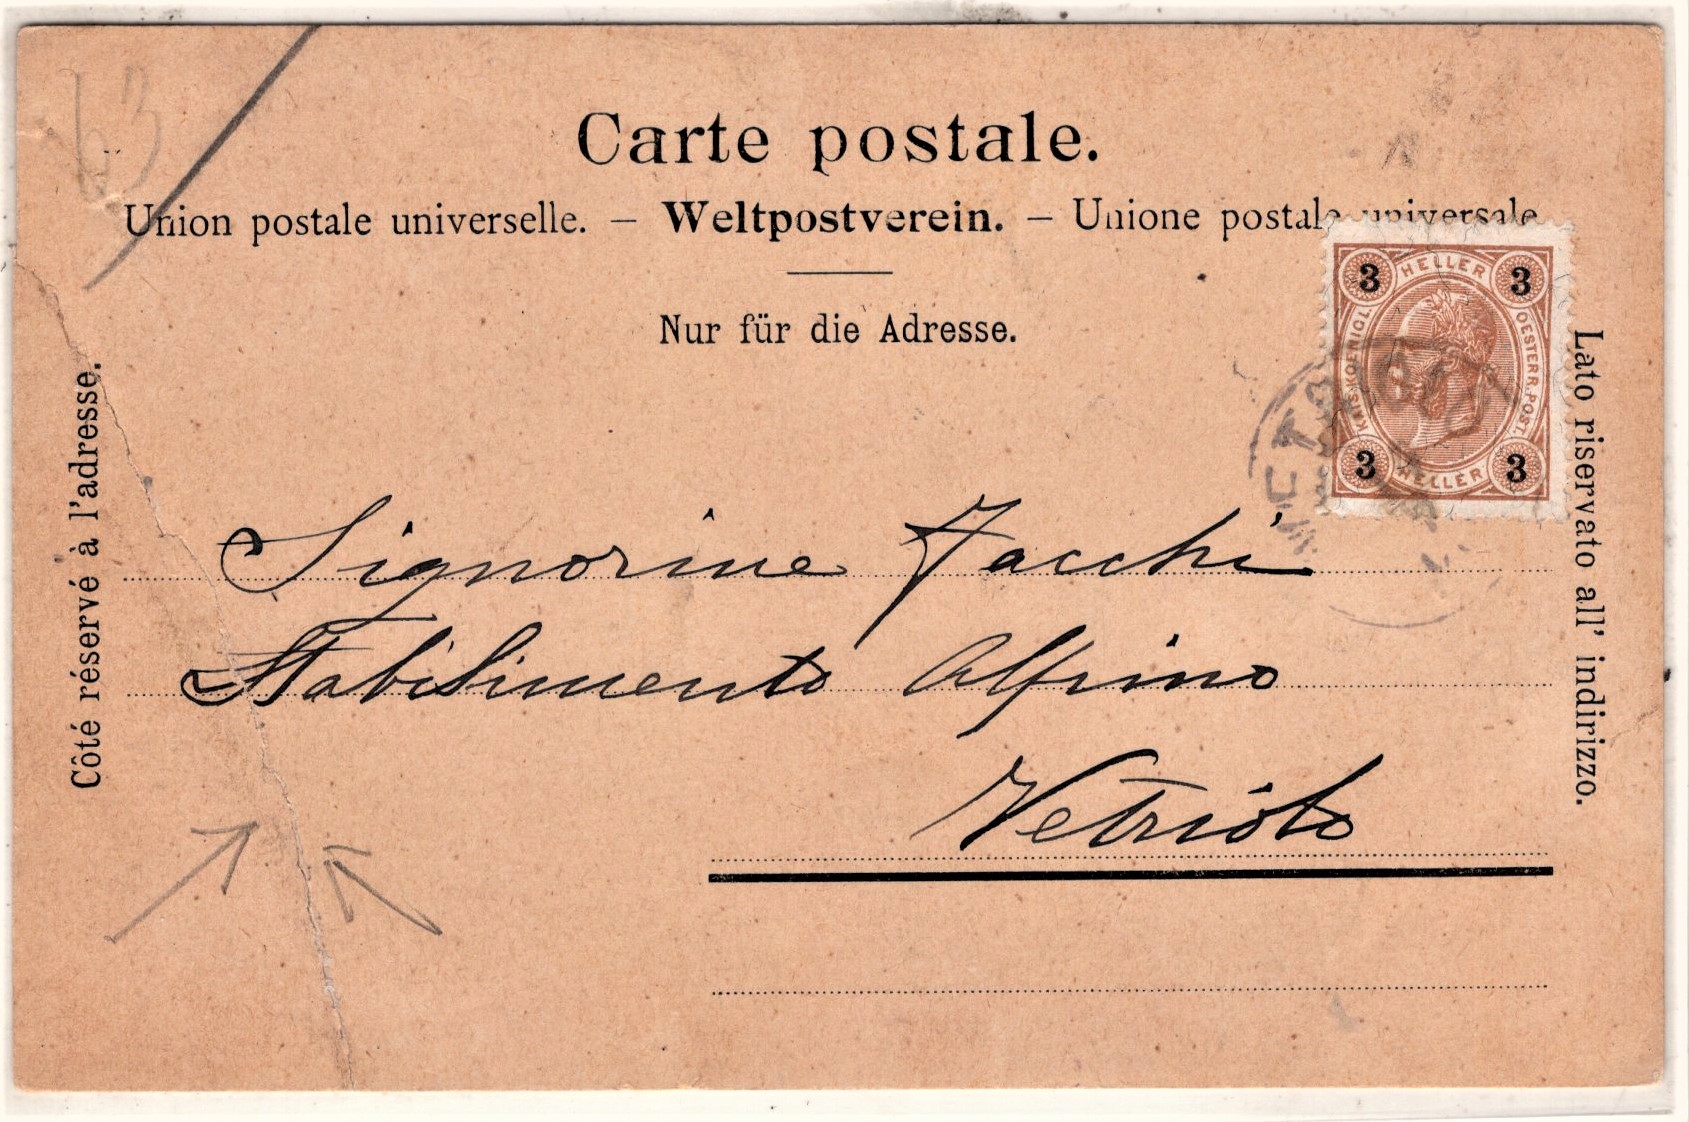 63
Carte postale.
Union postale universelle. – Weltpostverein. – Unione postale universale
Nur für die Adresse.
Côté réservé à l'adresse.
Lato riservato all' indirizzo.
3 HELLER 3
KAIS. KOENIGL. OESTERR. POST.
3 HELLER 3
Signorine Jacchi
Stabilimento Alpino
Vetriolo